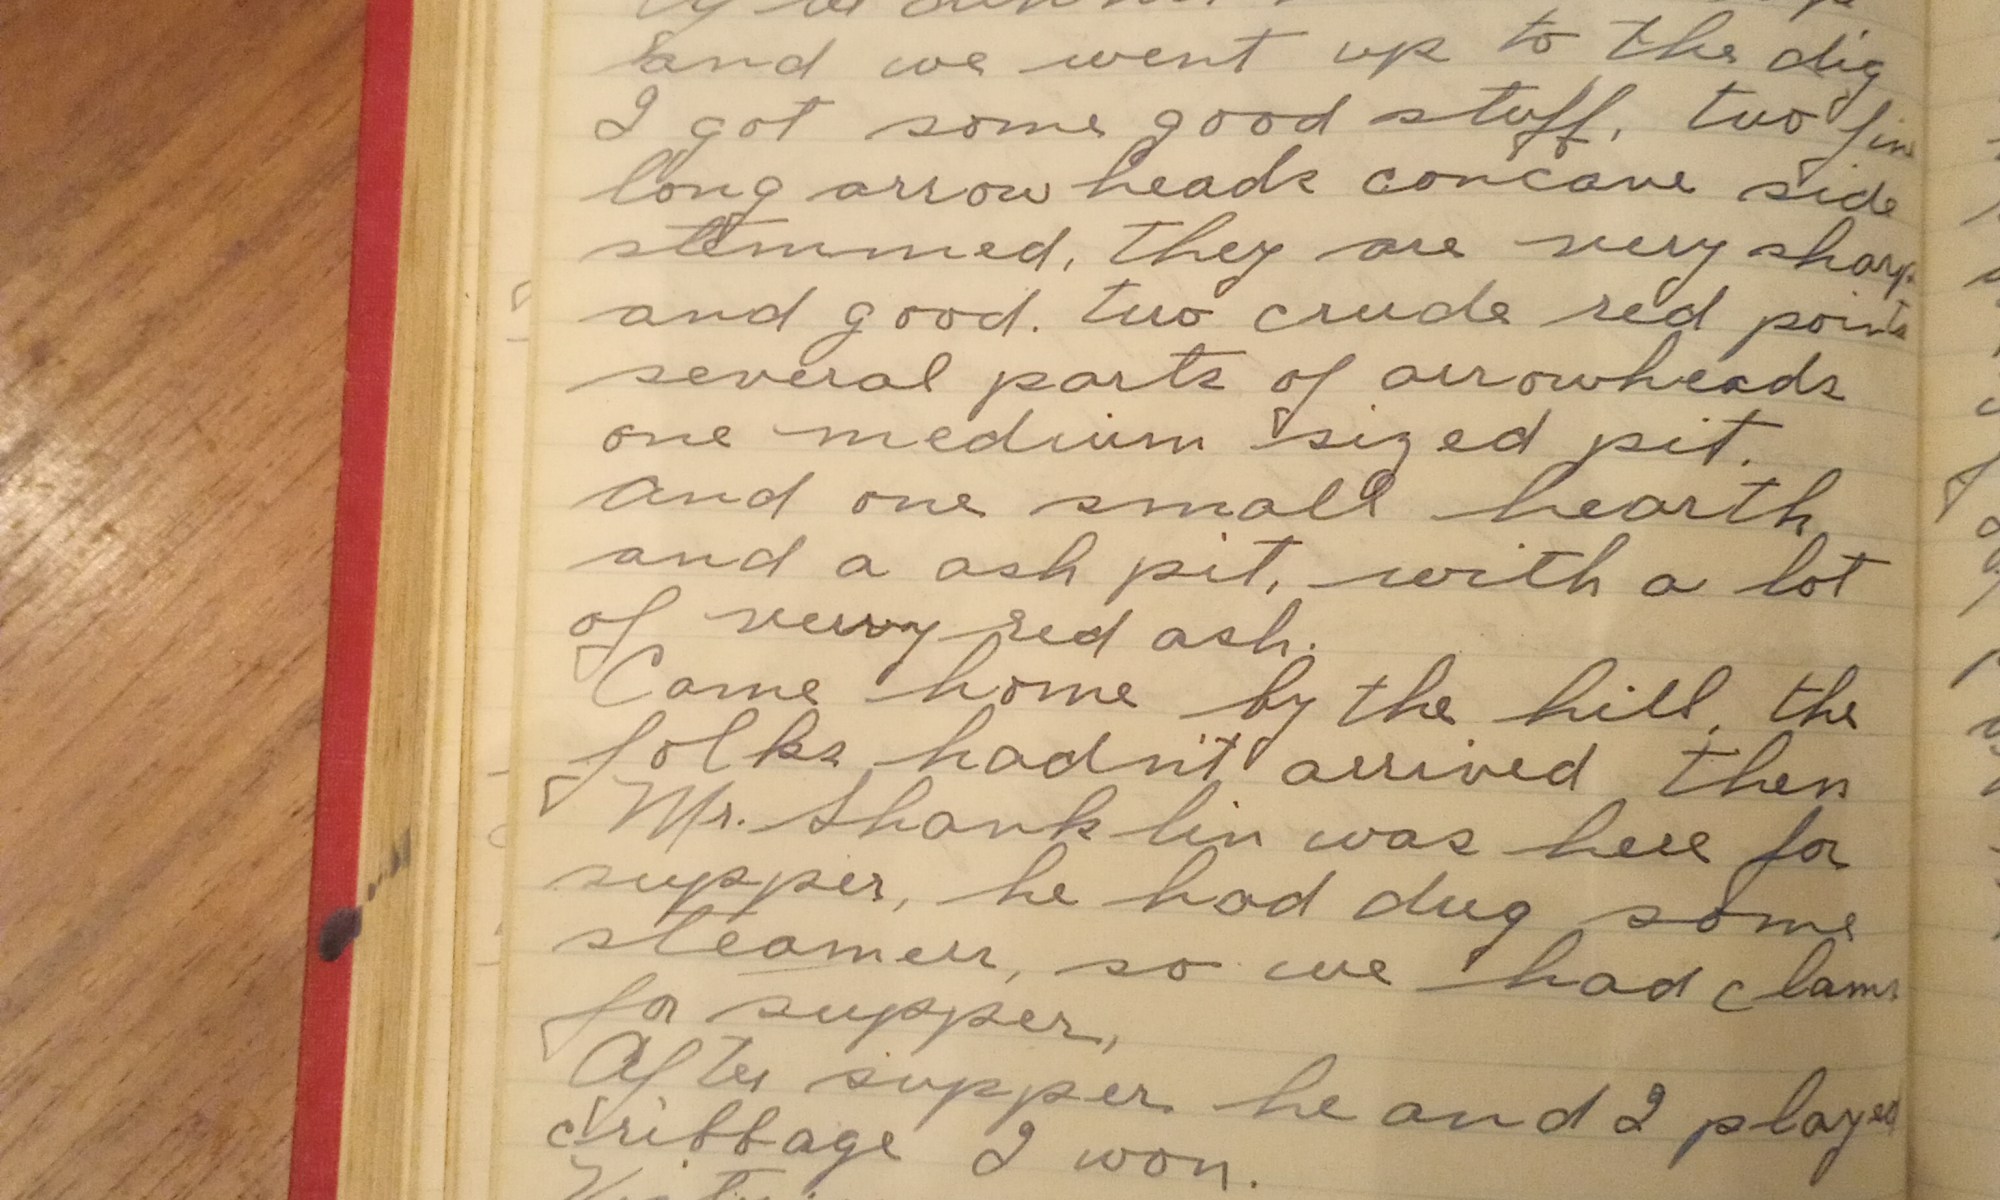 and we went up to the dig
I got some good stuff, two fine
long arrow heads concave side
stemmed, they are very sharp
and good. two crude red points
several parts of arrowheads
one medium sized pit.
and one small hearth
and a ash pit, with a lot
of very red ash.
Came home by the hill, the
folks hadn't arrived then
Mr. Shanklin was here for
supper, he had dug some
steamers, so we had clams
for supper,
After supper he and I played
cribbage I won.